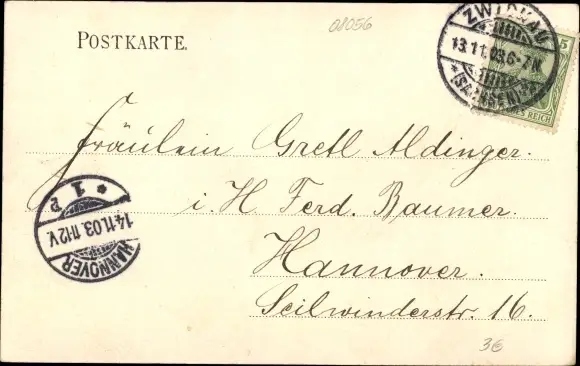 08056
POSTKARTE.
ZWICKAU
13.11.03.6-7N.
*(SACHSEN)*
5
REICH
Fräulein Gretl Aldinger.
i. H. Ferd. Baumer.
Hannover.
Seilwinderstr. 16.
HANNOVER
14.11.03.11-12V.
* 1 *
3€